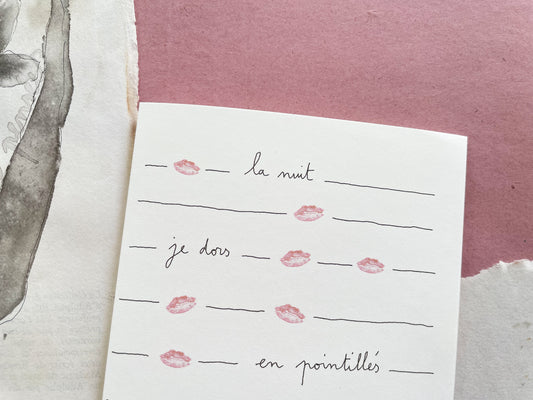 la nuit
je dors
en pointillés